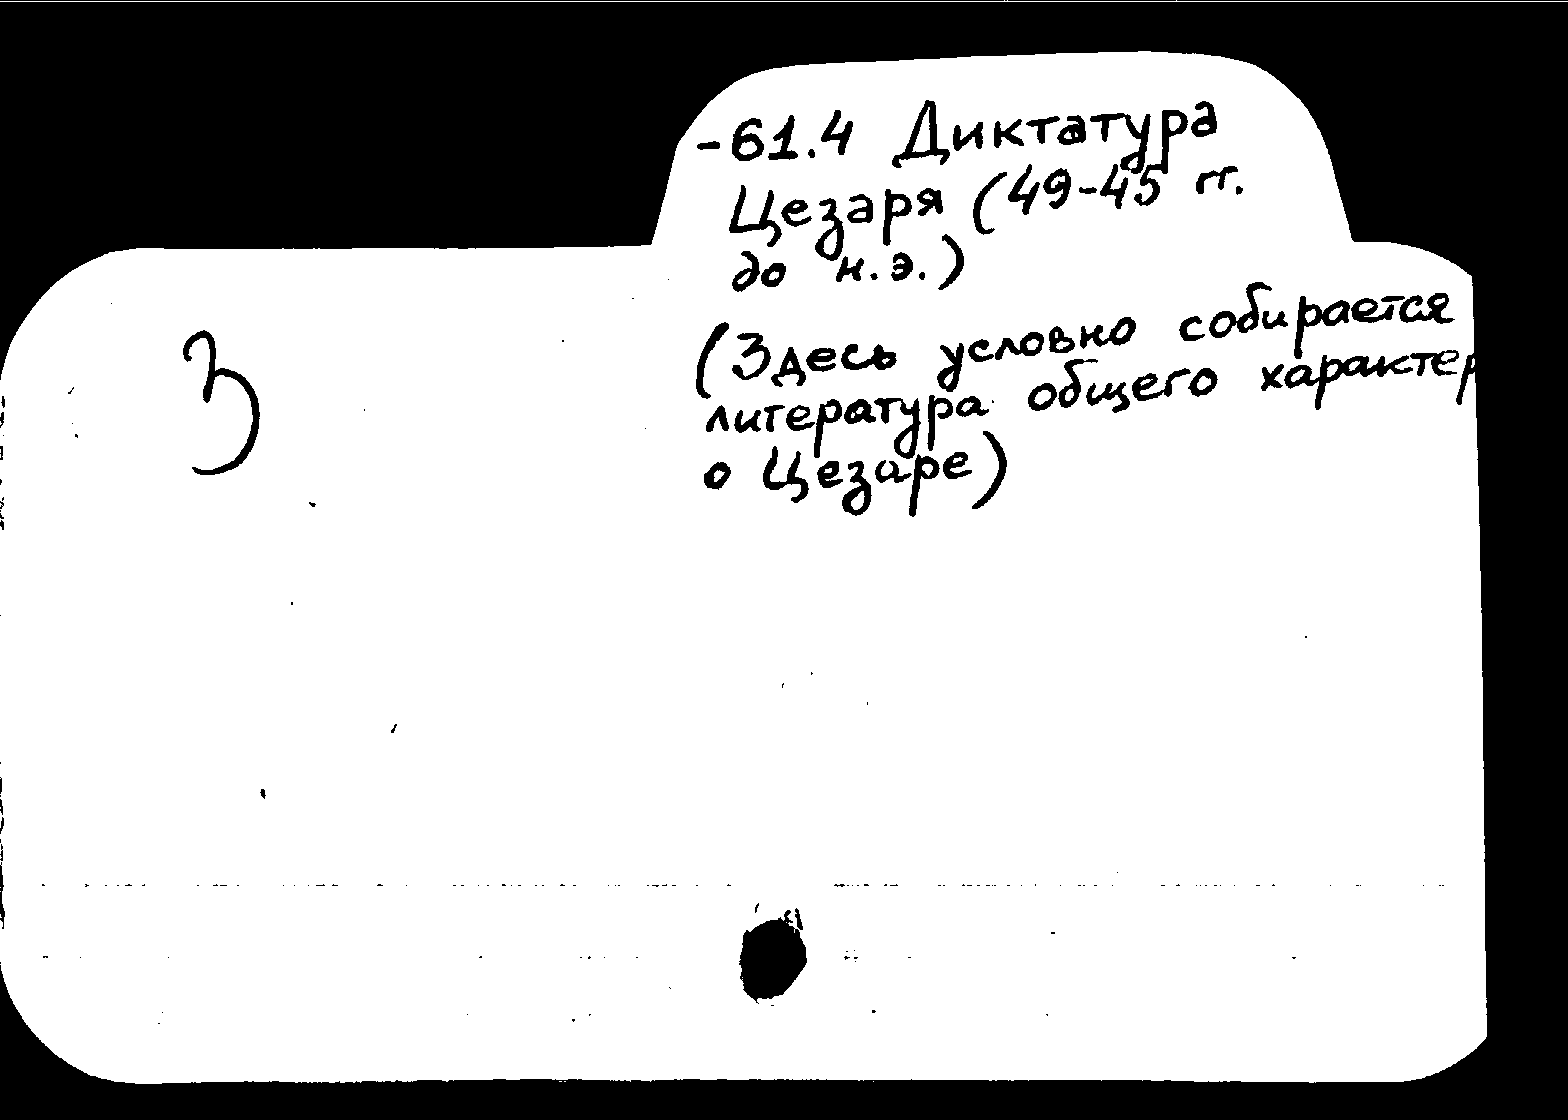 -61.4 Диктатура
Цезаря (49-45 гг.
до н.э.)
(Здесь условно собирается
литература общего характер
о Цезаре)
3